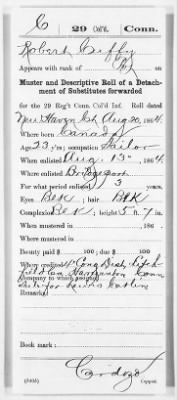 C 29 Col'd Conn.
Robert Ciffy
Appears with rank of Pvt on
Muster and Descriptive Roll of a Detach-
ment of Substitutes forwarded
for the 29 Reg't Conn. Col'd Inf. Roll dated
New Haven Ct Aug 20, 1864.
Where born Canada
Age 23 y'rs; occupation Sailor
When enlisted Aug. 13", 1864
Where enlisted Bridgeport
For what period enlisted 3 years.
Eyes Blk; hair Blk
Complexion Blk; height 5 ft. 7 in.
When mustered in , 186 .
Where mustered in
Bounty paid $ 100; due $ 100
Where credited 4" Cong Dist, Litch
field Co. Harwinton Conn
Company to which assigned
Sub. for Lewis
Remarks:
Book mark:
Cardozo
(340b) Copyist.